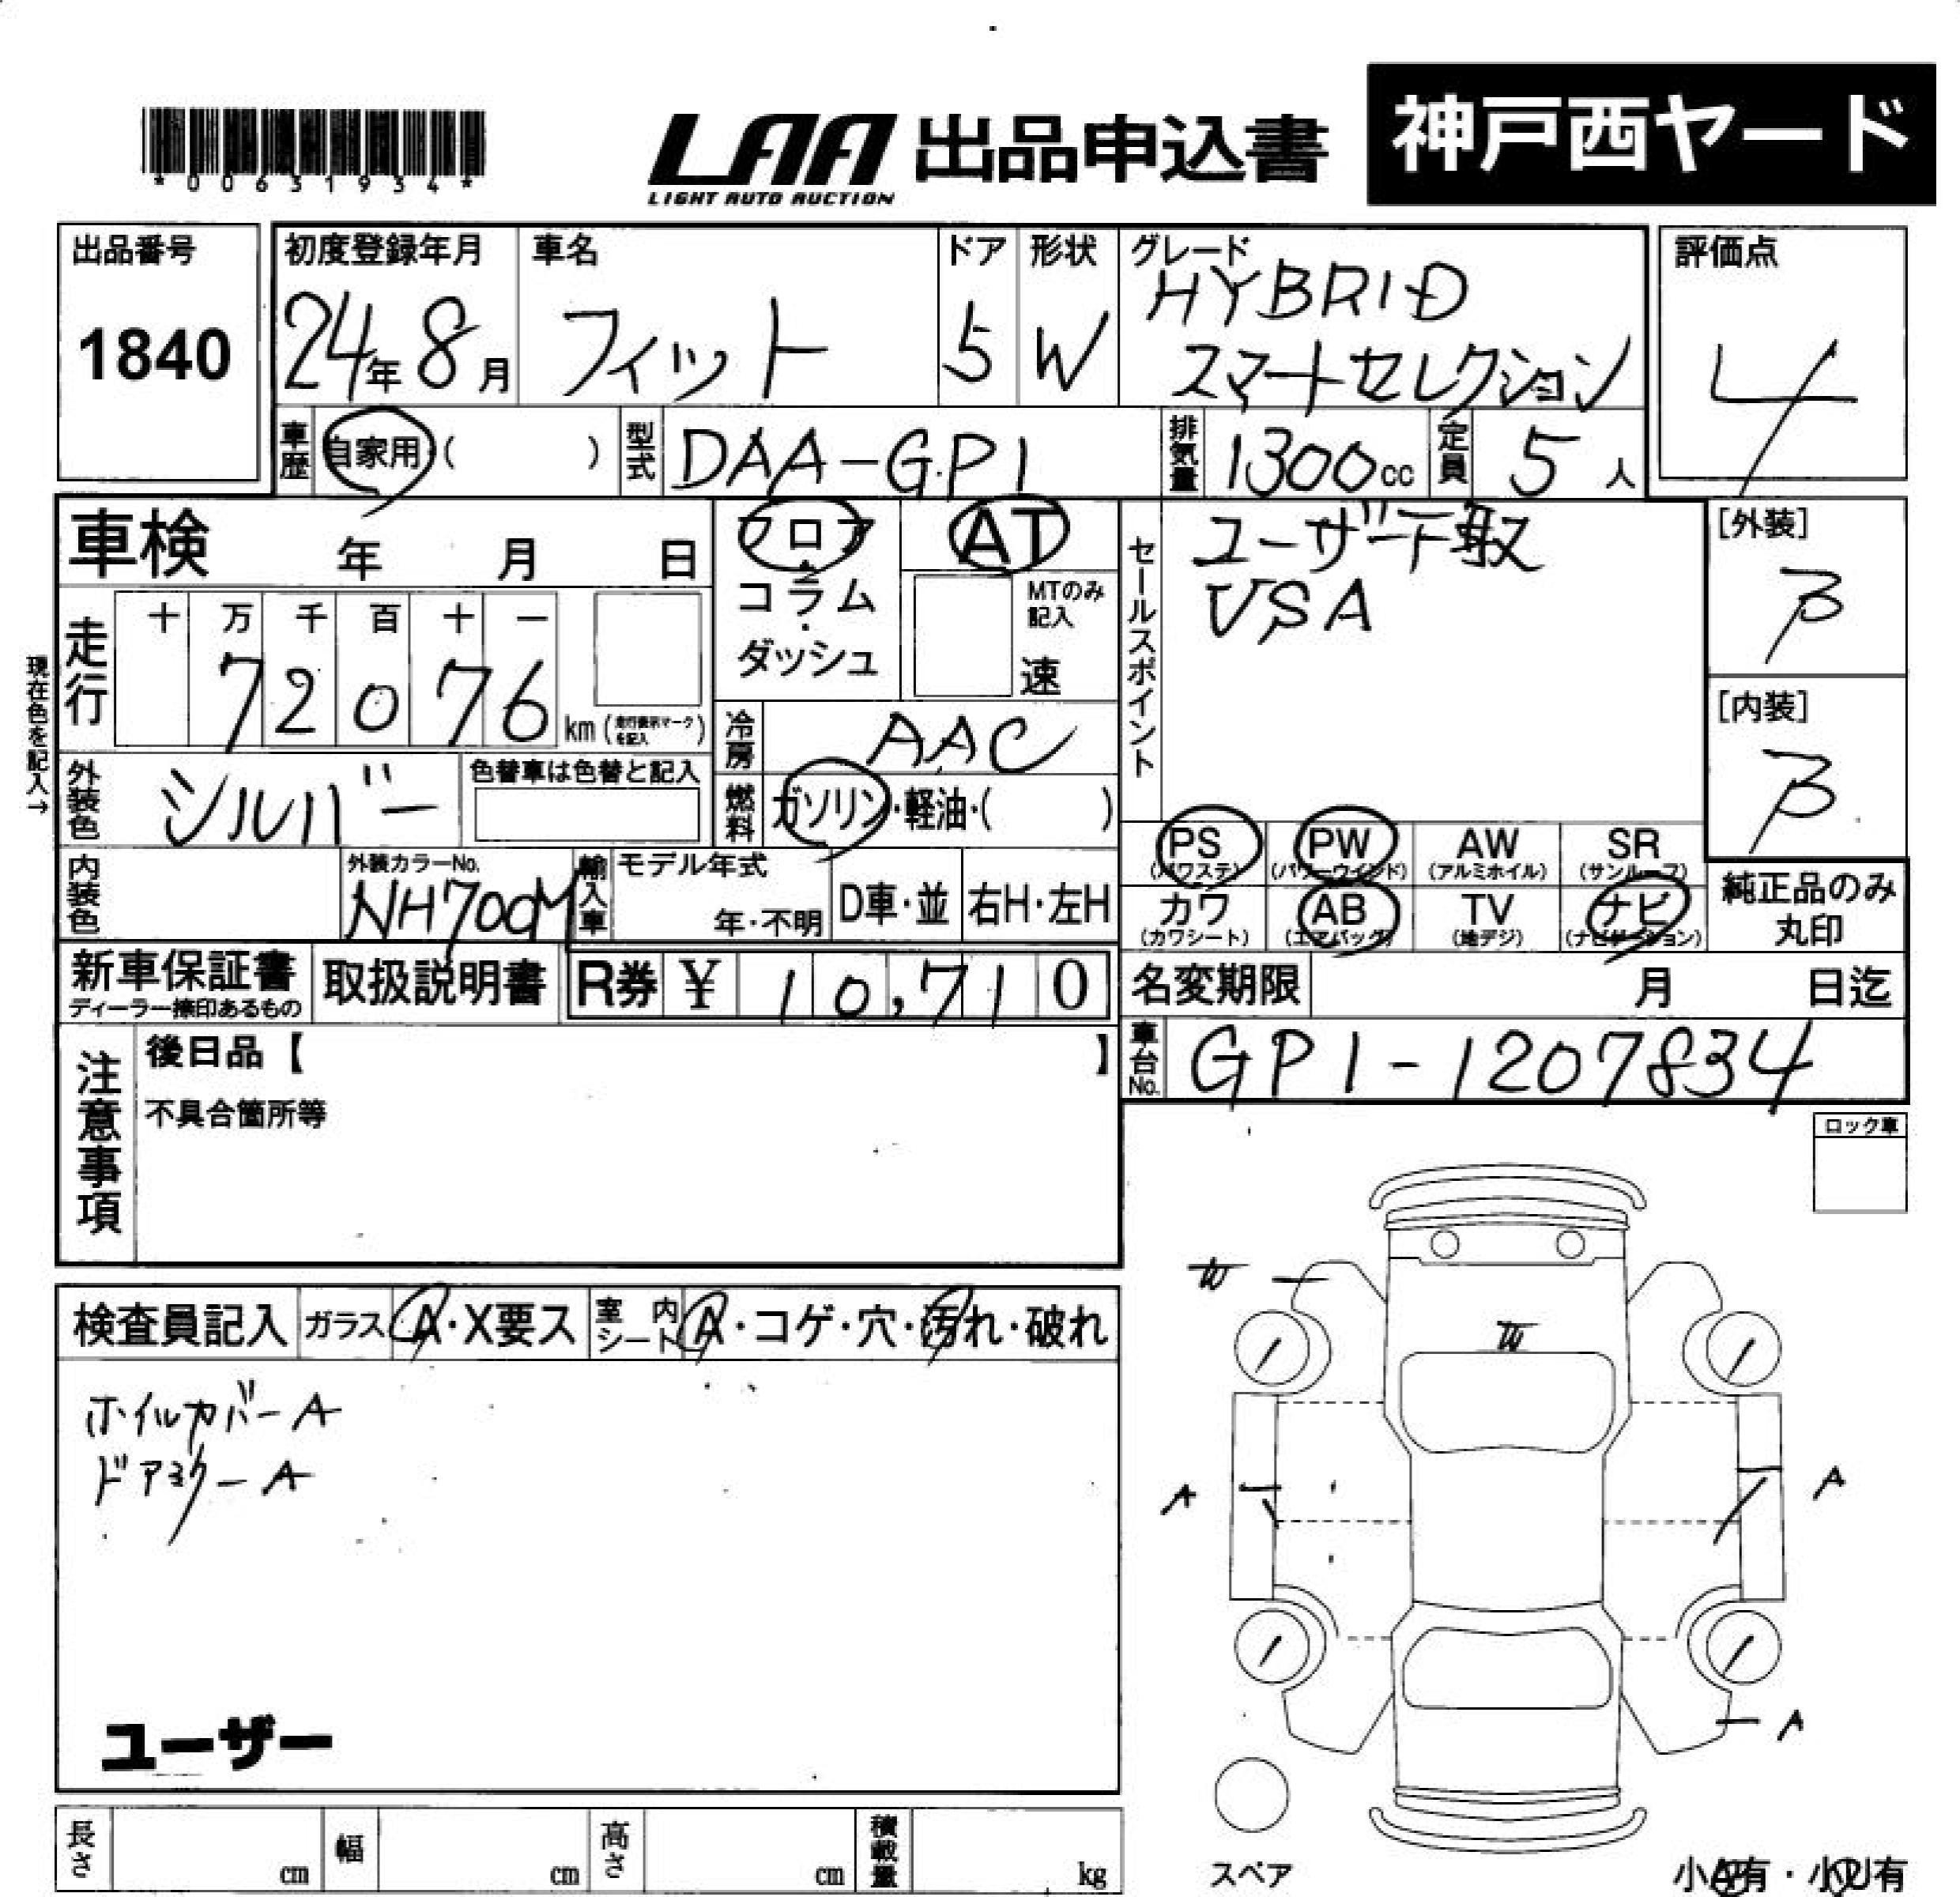 *00631934*
LAA 出品申込書
LIGHT AUTO AUCTION
神戸西ヤード
出品番号
1840
初度登録年月
24年8月
車名
フィット
ドア
5
形状
W
グレード
HYBRID
スマートセレクション
評価点
4
車歴
自家用 ( )
型式
DAA-GP1
排気量
1300cc
定員
5人
車検 年 月 日
フロア・コラム・ダッシュ
AT
MTのみ記入
速
セールスポイント
ユーザー下取
VSA
[外装]
B
[内装]
B
現在色を記入→
走行
十 万 千 百 十 一
7 2 0 7 6 km (走行表示マークを記入)
冷房
AAC
外装色
シルバー
色替車は色替と記入
燃料
ガソリン・軽油・( )
内装色
外装カラーNo.
NH700M
輸入車
モデル年式
年・不明
D車・並
右H・左H
PS
(パワステ)
PW
(パワーウインド)
AW
(アルミホイル)
SR
(サンルーフ)
カワ
(カワシート)
AB
(エアバッグ)
TV
(地デジ)
ナビ
(ナビゲーション)
純正品のみ
丸印
新車保証書
ディーラー捺印あるもの
取扱説明書
R券 ¥ 10,710
名変期限 月 日迄
車台No.
GP1-1207834
注意事項
後日品【 】
不具合箇所等
ロック車
検査員記入
ガラス
A・X要ス
室内シート
A・コゲ・穴・汚れ・破れ
ホイルカバーA
ドアミラーA
ユーザー
W
W
A
A
A
長さ cm
幅 cm
高さ cm
積載量 kg
スペア
小A有・小U有